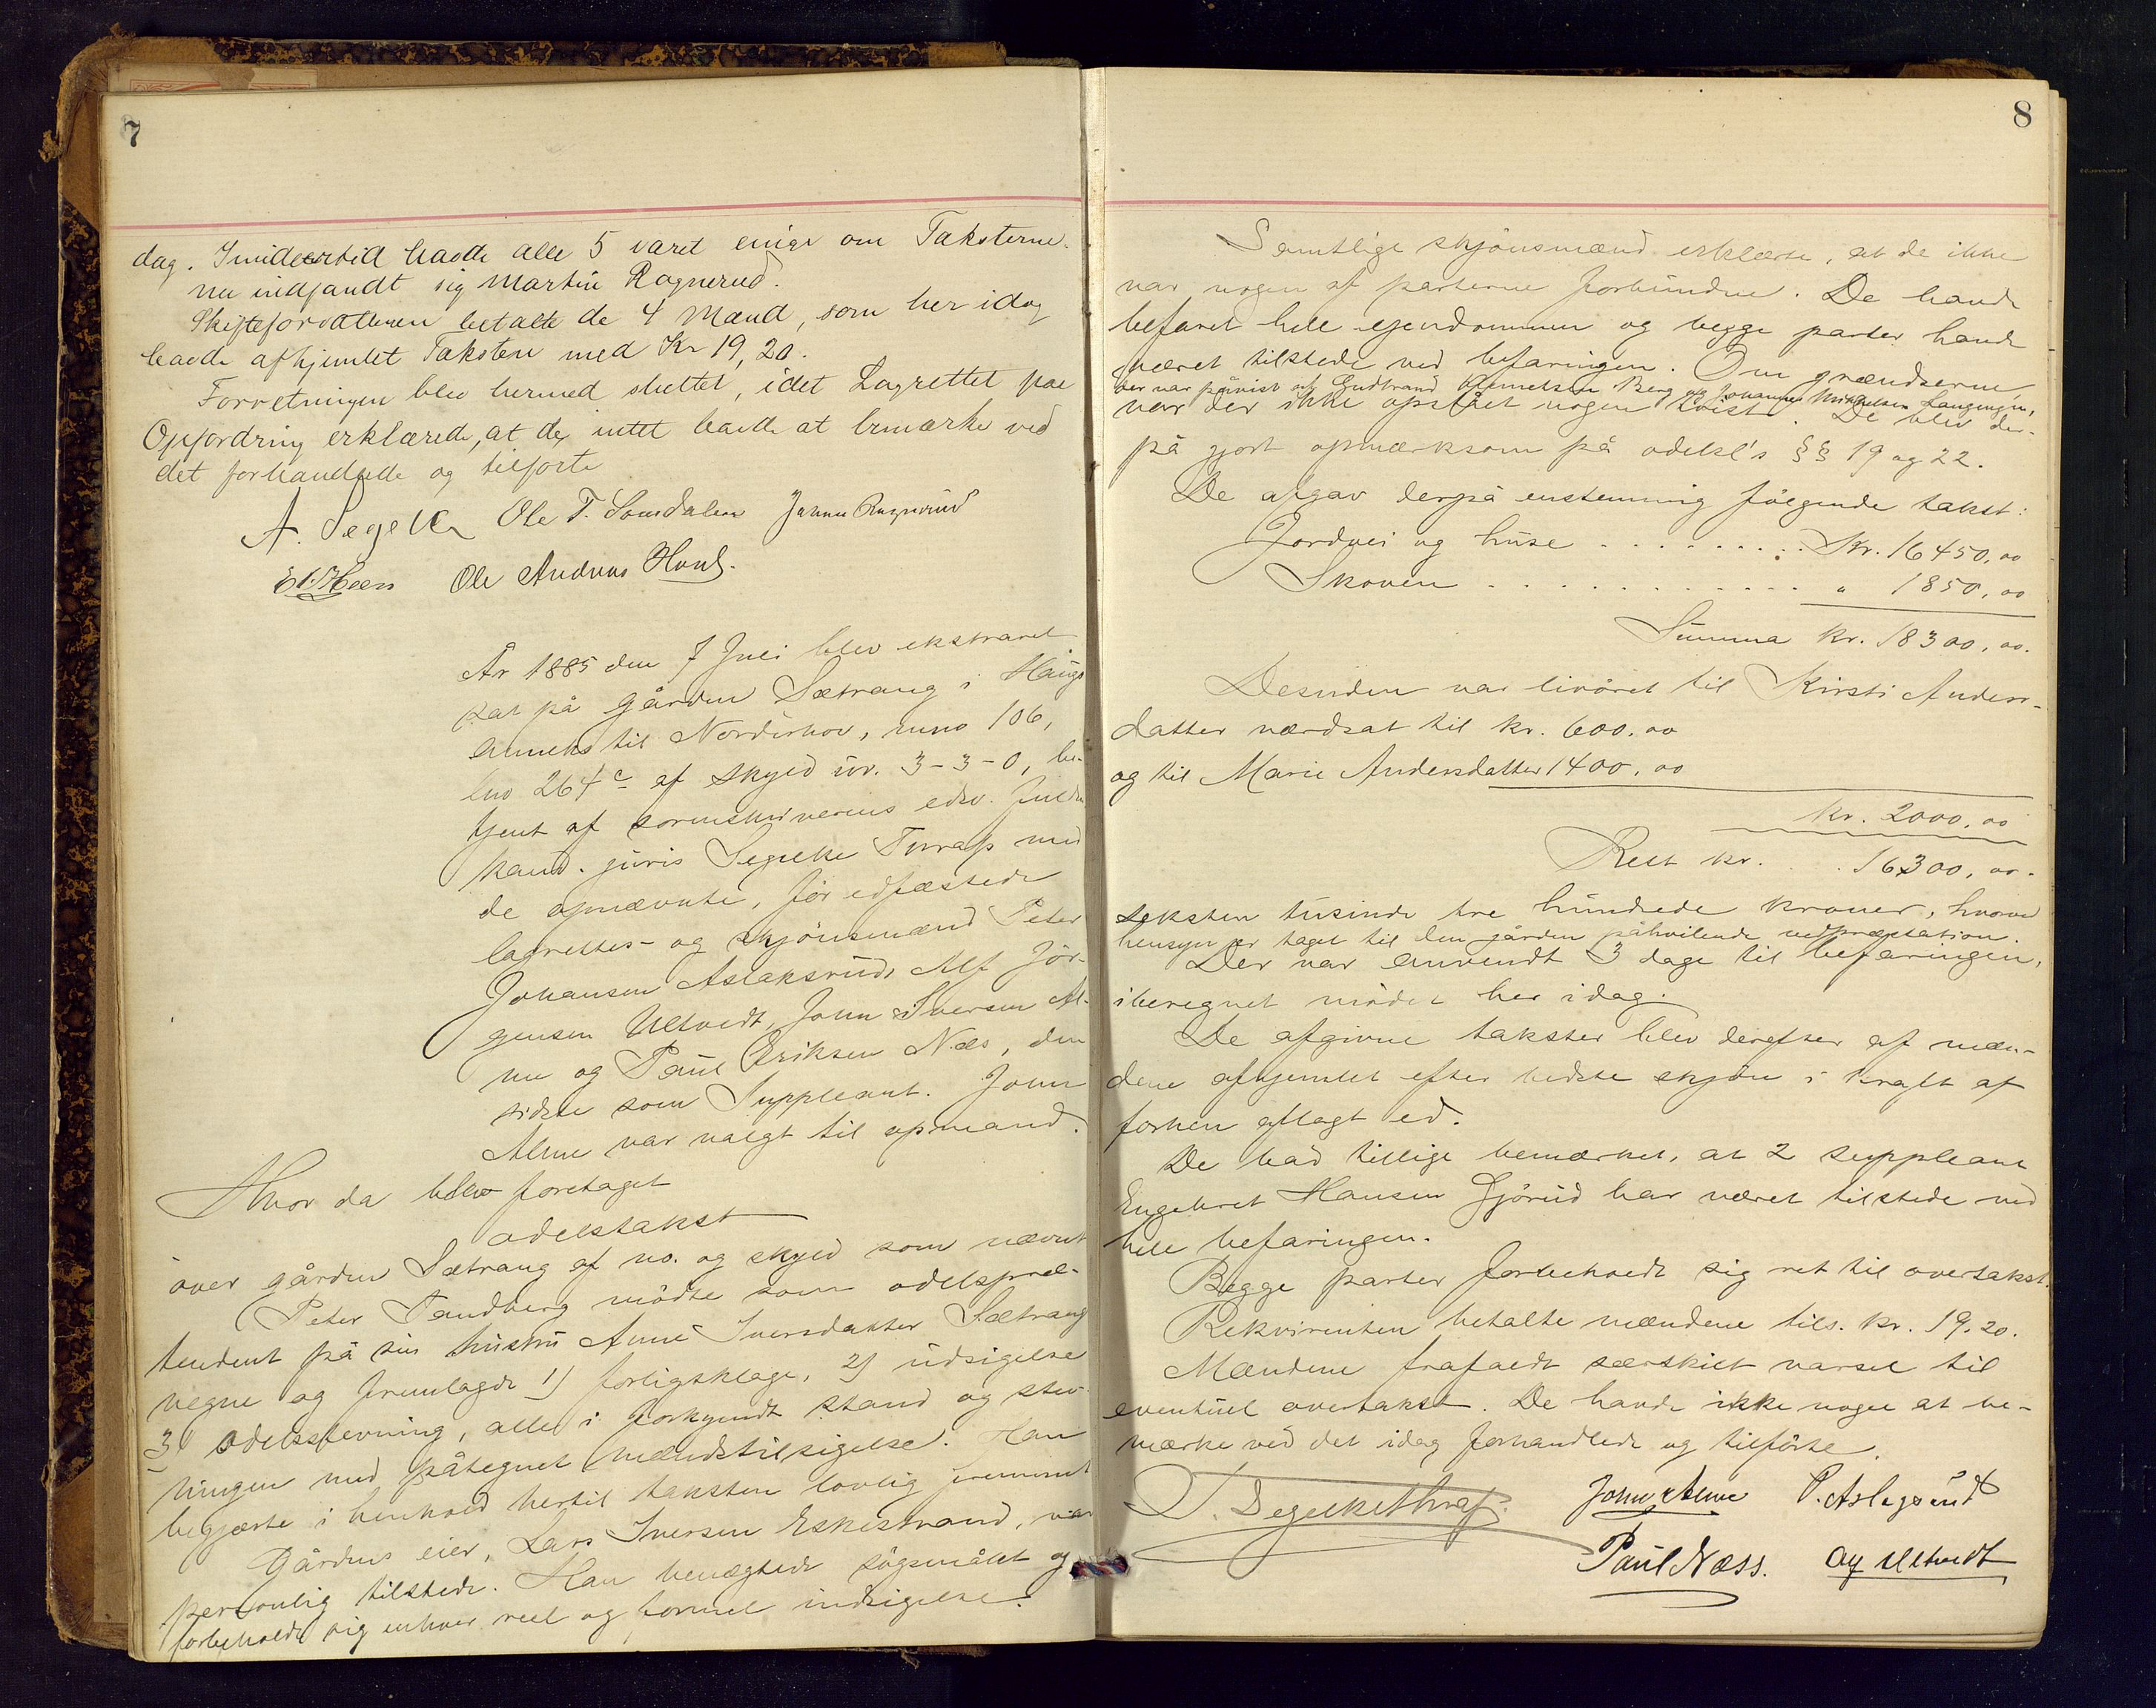 7
dag. Imidlertid havde alle 5 været enige om Taksterne.
nu indfandt sig Martin Ragnerud.
Skifteforvalteren betalte de 4 Mænd, som her idag
havde afhjemlet Taksten med Kr 19,20.
Forretningen blev hermed sluttet, idet Lagrettet paa
Opfordring erklærede, at de intet havde at bemærke ved
det forhandlede og tilførte
A. Segelke Ole T. Somdalen Johan Ragnerud
Ole Andreas Hovl.
År 1885 den 7 Juli blev ekstraret
sat på gården Sætrang i Haugs
anneks til Norderhov, mno 106,
lno 264c af skyld ur. 3-3-0, be-
tjent af sorenskriverens edsv. fuldm
kand. juris Segelke Thrap med
de opnævnte, før edfæstede
lagrettes- og skjønsmænd Peter
Johansen Aslaksrud, Alf Jør-
gensen Ultvedt, John Iversen Al-
me og Paul Eriksen Næs, den
sidste som Suppleant. John
Alme var valgt til opmand.
Hvor da blev foretaget
odelstakst
over gården Sætrang af no. og skyld som nævnt
Peter Sandberg mødte som odelspræ-
tendent på sin hustru Anne Iversdatter Sætrang
vegne og fremlagde 1) forligsklage, 2) udsigelse
3) odelsstevning, alle i forkyndt stand og stev-
ningen med påtegnet mændstilsigelse. Han
begjærte i henhold hertil taksten lovlig fremmet
Gårdens eier, Lars Iversen Eskestrand, var
personlig tilstede. Han benægtede søgsmålet og
forbeholdt sig enhver reel og formel indsigelse.
8
Samtlige skjønsmænd erklærte, at de ikke
var nogen af parterne forbundne. De havde
befaret hele ejendommen og begge parter havde
været tilstede ved befaringen. Om grændserne
der var påvist af Gudbrand Berg og Johannes Mikkelsen
var der ikke opstået nogen tvist. De blev der-
på gjort opmærksom på odelsl's §§ 19 og 22.
De afgav derpå enstemmig følgende takst:
Jordvei og huse ......... Kr. 16450,00
Skoven ............ " 1850,00
Summa kr. 18300,00.
Desuden var livøret til Kirsti Anders-
datter værdsat til kr. 600,00
og til Marie Andersdatter 1400,00
kr. 2000,00
Rest kr. . . 16300,00.
seksten tusinde tre hundrede kroner, hvorved
hensyn er taget til den gården påhvilende vedpræstation.
Der var anvendt 3 dage til befaringen,
iberegnet mødet her idag.
De afgivne takster blev derefter af mæn-
dene afhjemlet efter bedste skjøn i kraft af
forhen aflagt ed.
De bad tillige bemærket, at 2 suppleant
Engebret Hansen Gjørud har været tilstede ved
hele befaringen.
Begge parter forbeholdt sig ret til overtakst.
Rekvirenten betalte mændene tils. kr. 19.20.
Mændene frafaldt særskilt varsel til
eventuel overtakst. De havde ikke noget at be-
mærke ved det idag forhandlede og tilførte.
Segelke Thrap. John Alme P. Aslagsrud
Paul Næss. Alf Ultvedt